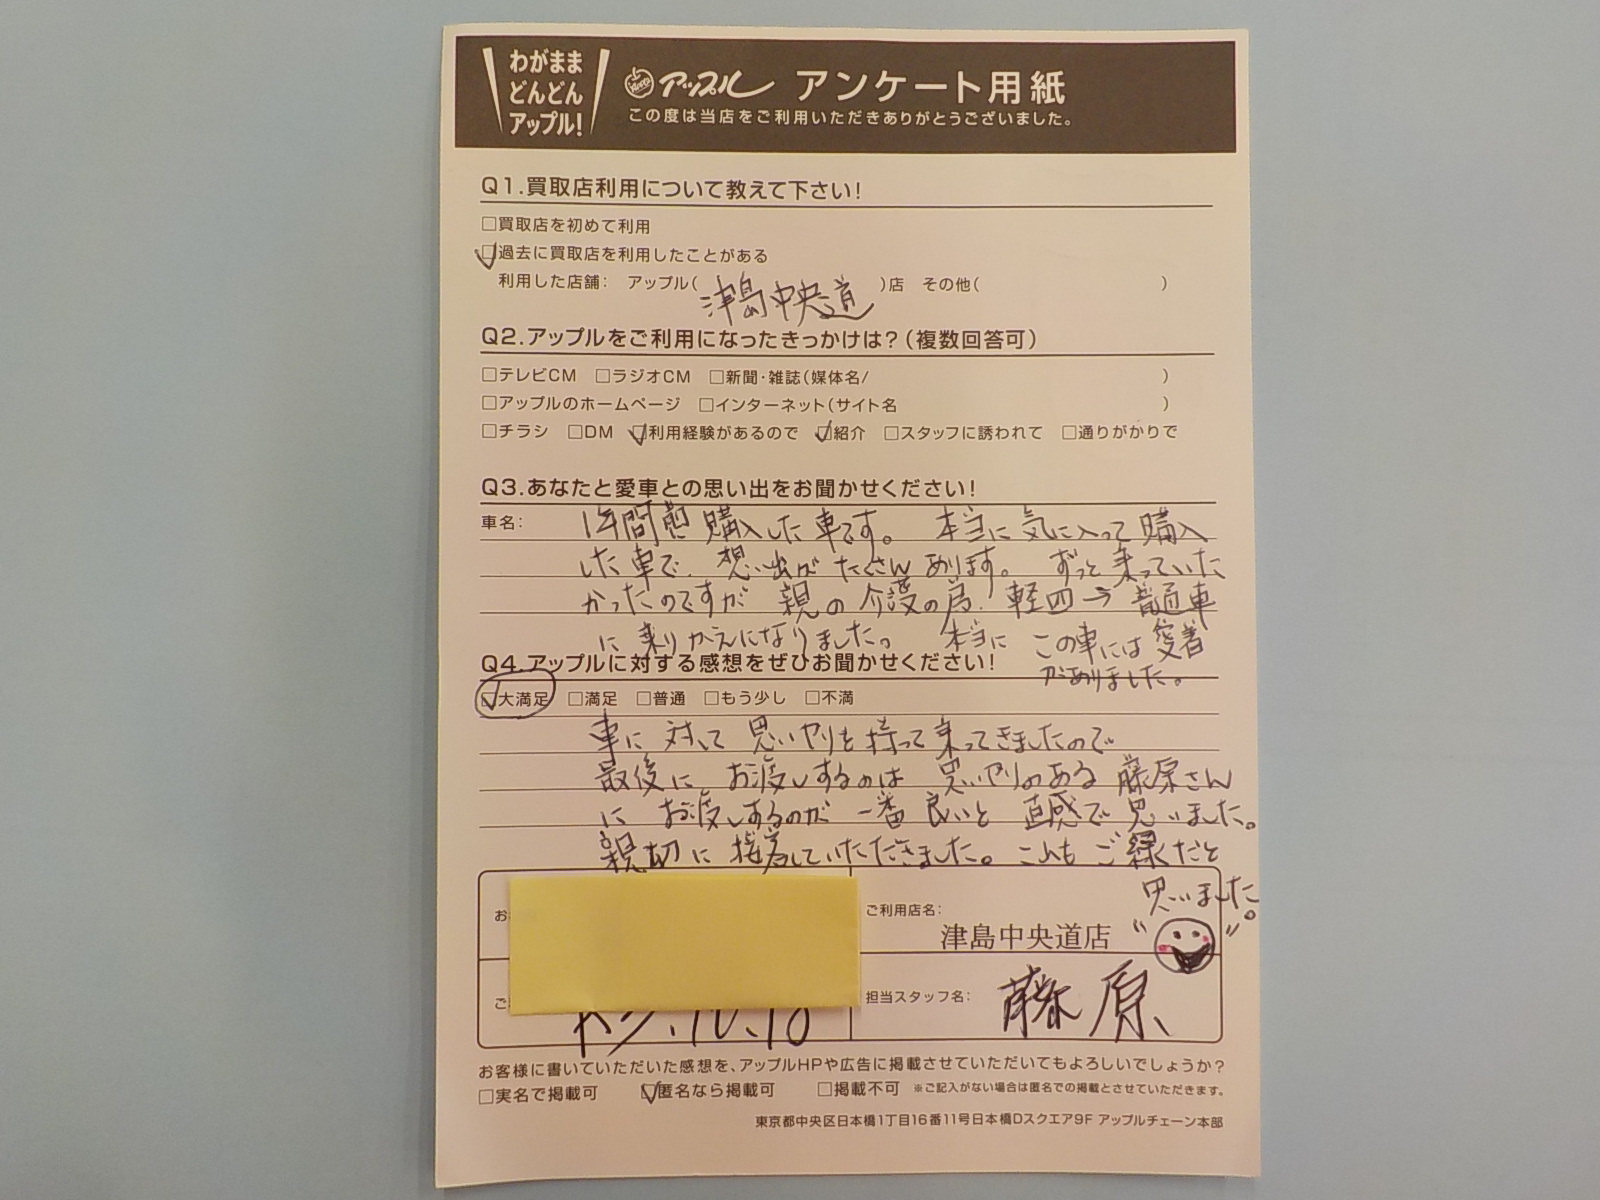 わがまま
どんどん
アップル!
アップル アンケート用紙
この度は当店をご利用いただきありがとうございました。
Q1.買取店利用について教えて下さい!
□買取店を初めて利用
☑過去に買取店を利用したことがある
利用した店舗: アップル(津島中央道)店 その他( )
Q2.アップルをご利用になったきっかけは?(複数回答可)
□テレビCM □ラジオCM □新聞・雑誌(媒体名/ )
□アップルのホームページ □インターネット(サイト名 )
□チラシ □DM ☑利用経験があるので ☑紹介 □スタッフに誘われて □通りがかりで
Q3.あなたと愛車との思い出をお聞かせください!
車名: 1年間前 購入した車です。 本当に気に入って購入
した車で、想い出がたくさんあります。 ずっと乗っていた
かったのですが 親の介護の為、軽四→普通車
に乗りかえになりました。 本当に この車には愛着
がありました。
Q4.アップルに対する感想をぜひお聞かせください!
☑大満足 □満足 □普通 □もう少し □不満
車に対して思いやりを持って乗ってきましたので
最後に お渡しするのは 思いやりのある 藤原さん
に お渡しするのが 一番良いと 直感で思いました。
親切に 接客していただきました。 これも ご縁だと
思いました。
お
ご利用店名:
津島中央道店
ご
.10.18
担当スタッフ名:
藤原
お客様に書いていただいた感想を、アップルHPや広告に掲載させていただいてもよろしいでしょうか?
□実名で掲載可 ☑匿名なら掲載可 □掲載不可 ※ご記入がない場合は匿名での掲載とさせていただきます。
東京都中央区日本橋1丁目16番11号日本橋Dスクエア9F アップルチェーン本部